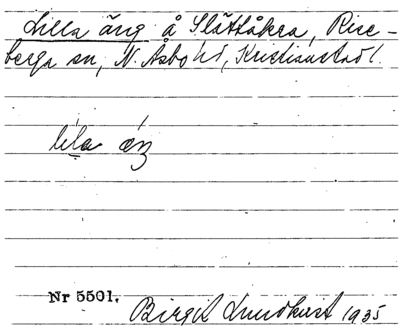 Lilla äng å Slättåkra, Rise-
berga sn, N. Åsbo hd, Kristianstad l.
lila æŋ
Nr 5501.
Birgit Lundkvist 1935